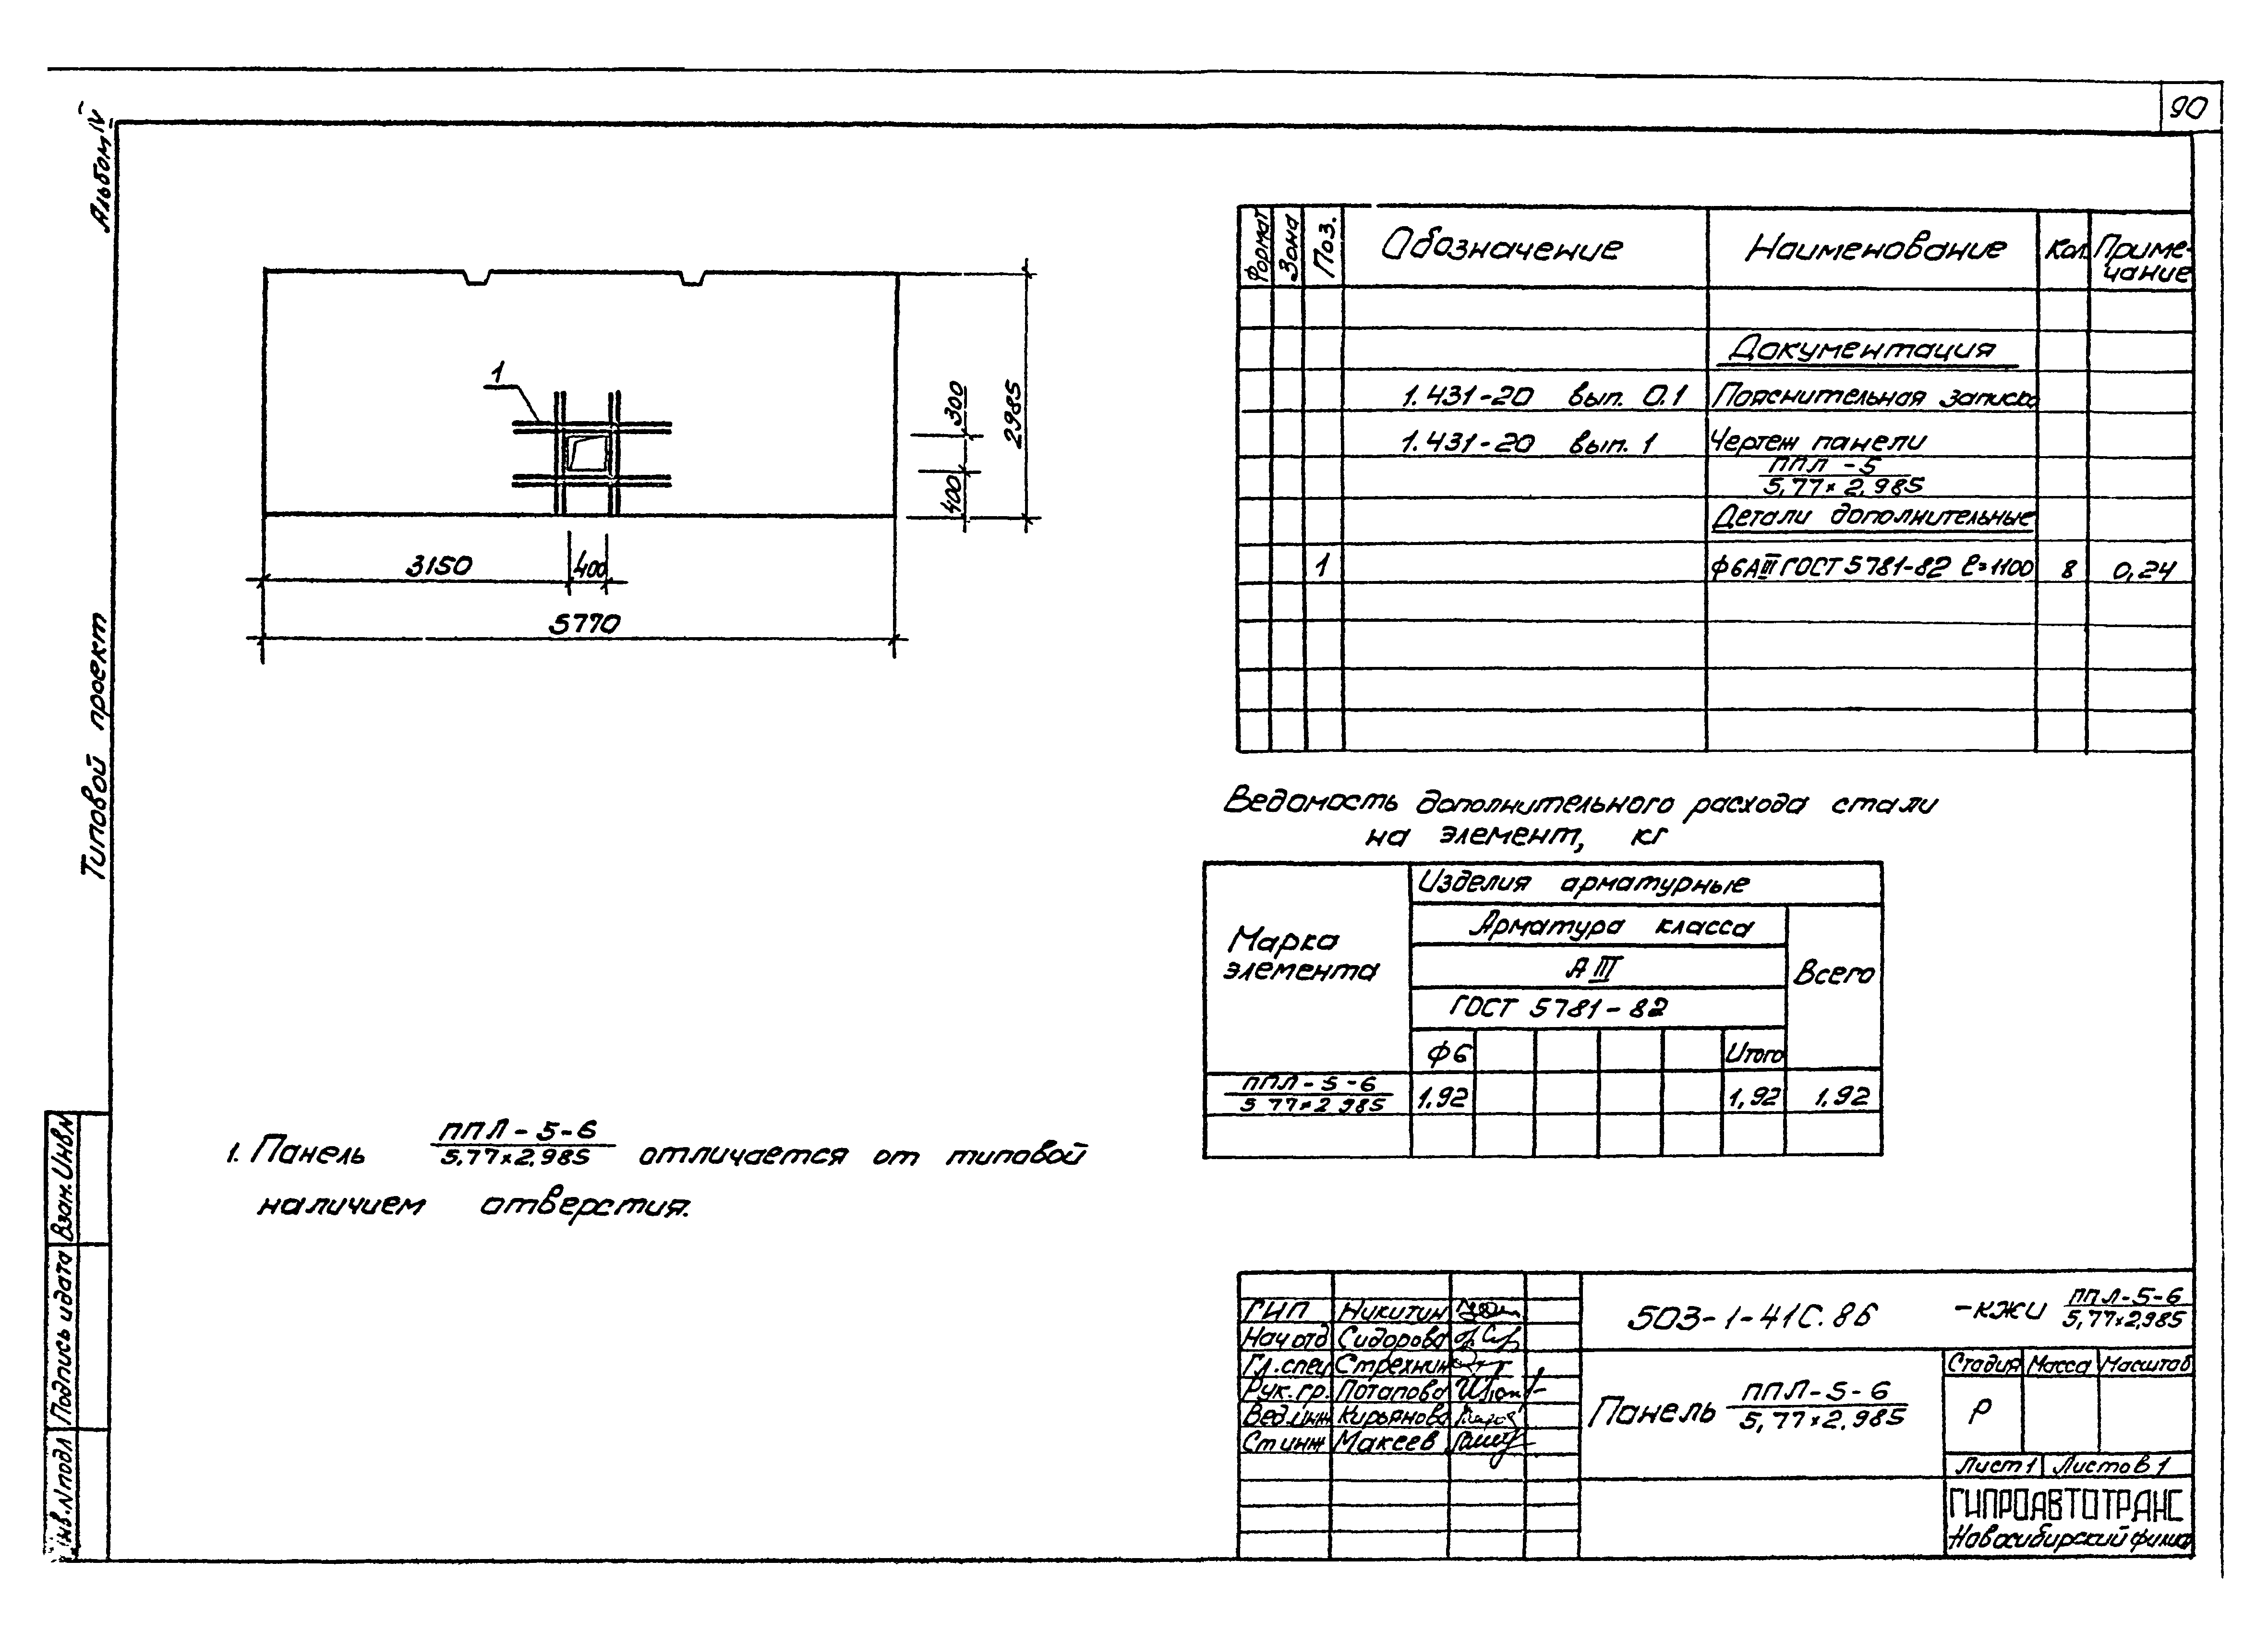 90
Альбом IV
Типовой проект
1
300
400
2985
3150
400
5770
Формат Зона Поз. Обозначение Наименование Кол. Приме-
чание
Документация
1.431-20 вып. 0.1 Пояснительная записка
1.431-20 вып. 1 Чертеж панели
ППЛ-5
5,77×2,985
Детали дополнительные
1 ф6АIII ГОСТ 5781-82 ℓ=1100 8 0,24
Ведомость дополнительного расхода стали
на элемент, кг
Марка
элемента
Изделия арматурные
Арматура класса
АIII
Всего
ГОСТ 5781-82
ф6 Итого
ППЛ-5-6
5 77×2 985
1,92 1,92 1.92
1. Панель ППЛ-5-6
5.77×2.985 отличается от типовой
наличием отверстия.
Взам. Инв№
Подпись и дата
Инв.№подл
ГИП Никитин
Нач отд Сидорова
Гл.спец Стрехнин
Рук.гр. Потапова
Вед.инж Кирьянова
Ст инж Макеев
503-1-41С.86 -КЖИ ППЛ-5-6
5,77×2,985
Панель ППЛ-5-6
5,77×2.985
Стадия Масса Масштаб
Р
Лист 1 Листов 1
ГИПРОАВТОТРАНС
Новосибирский филиал